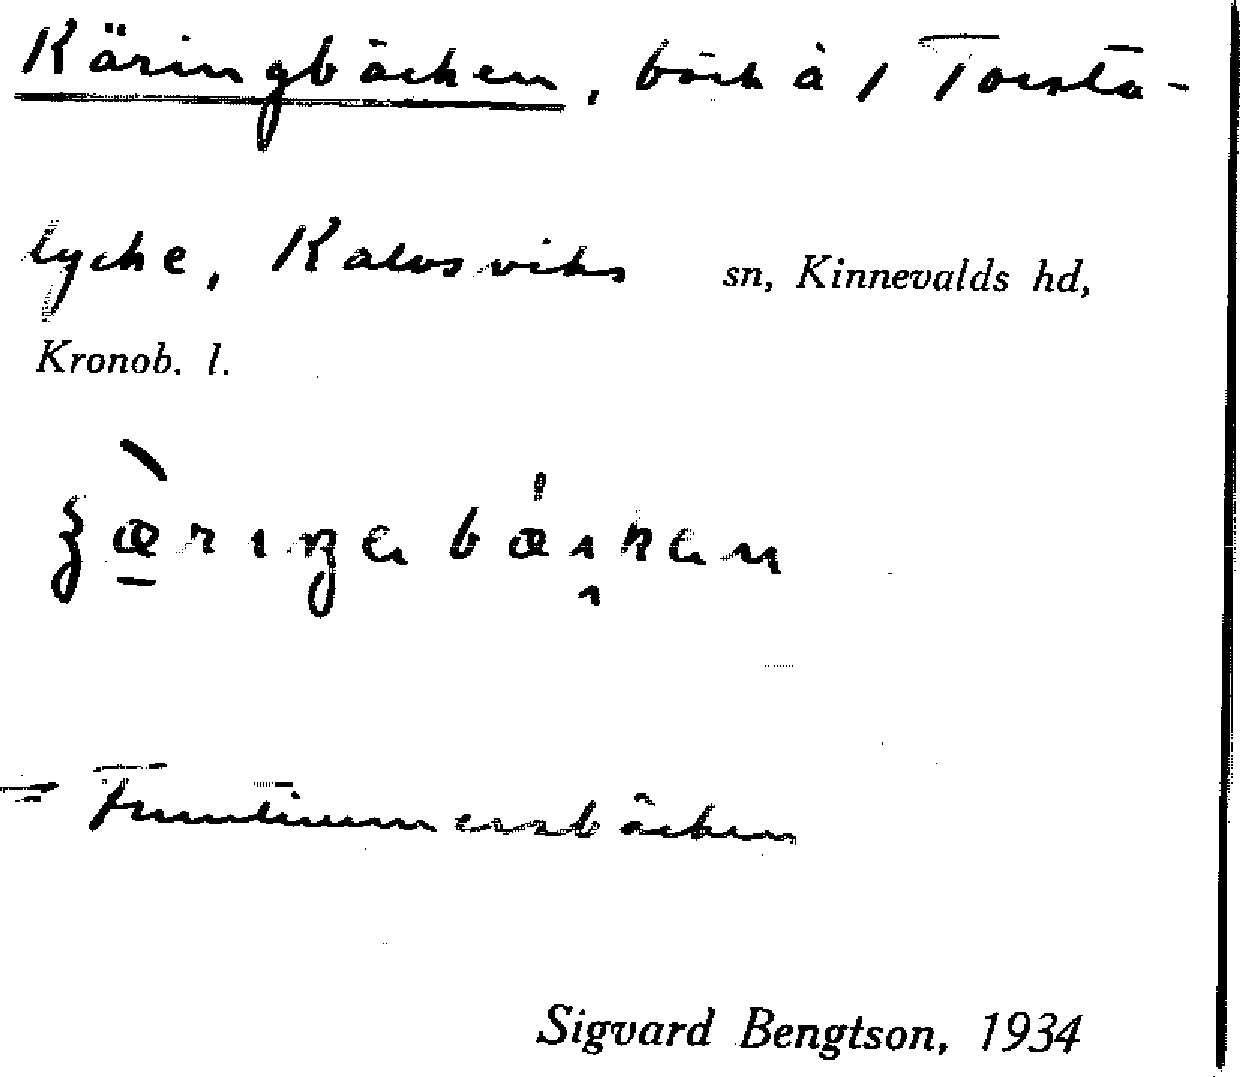 Käringbäcken, bäck å 1 Torsta-
lycke, Kalvsviks sn, Kinnevalds hd,
Kronob. l.
Sigvard Bengtson, 1934